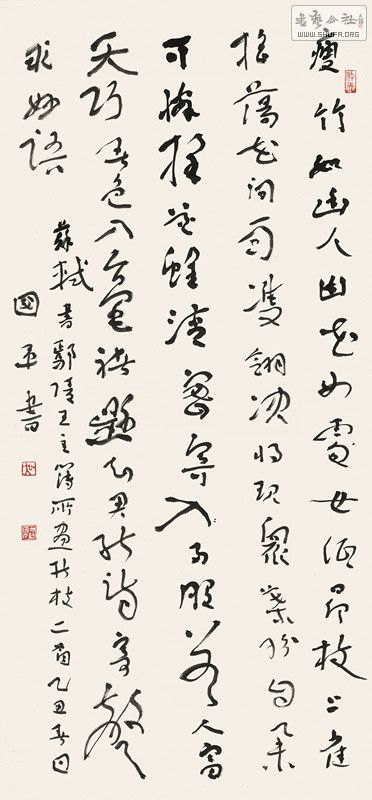 書藝公社
WWW.SHUFA.ORG
瘦竹如幽人幽花如處女低昂枝上雀
搖蕩花間雨雙翎決將起衆葉紛自舉
可憐採花蜂清蜜寄入兩股若人富
天巧春色入毫楮懸知君能詩寄聲
求妙語
蘇軾書鄢陵王主簿所畫折枝二首乙丑春日
國平書